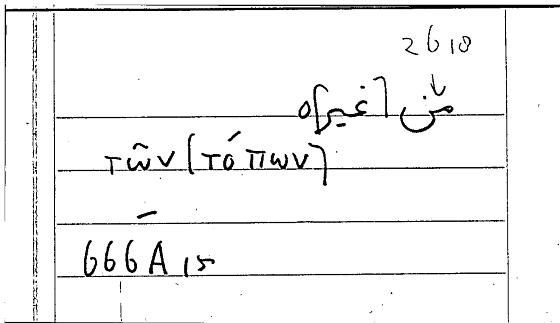 2618
↓
من [غير]ه
τῶν [τόπων]
–
666A15